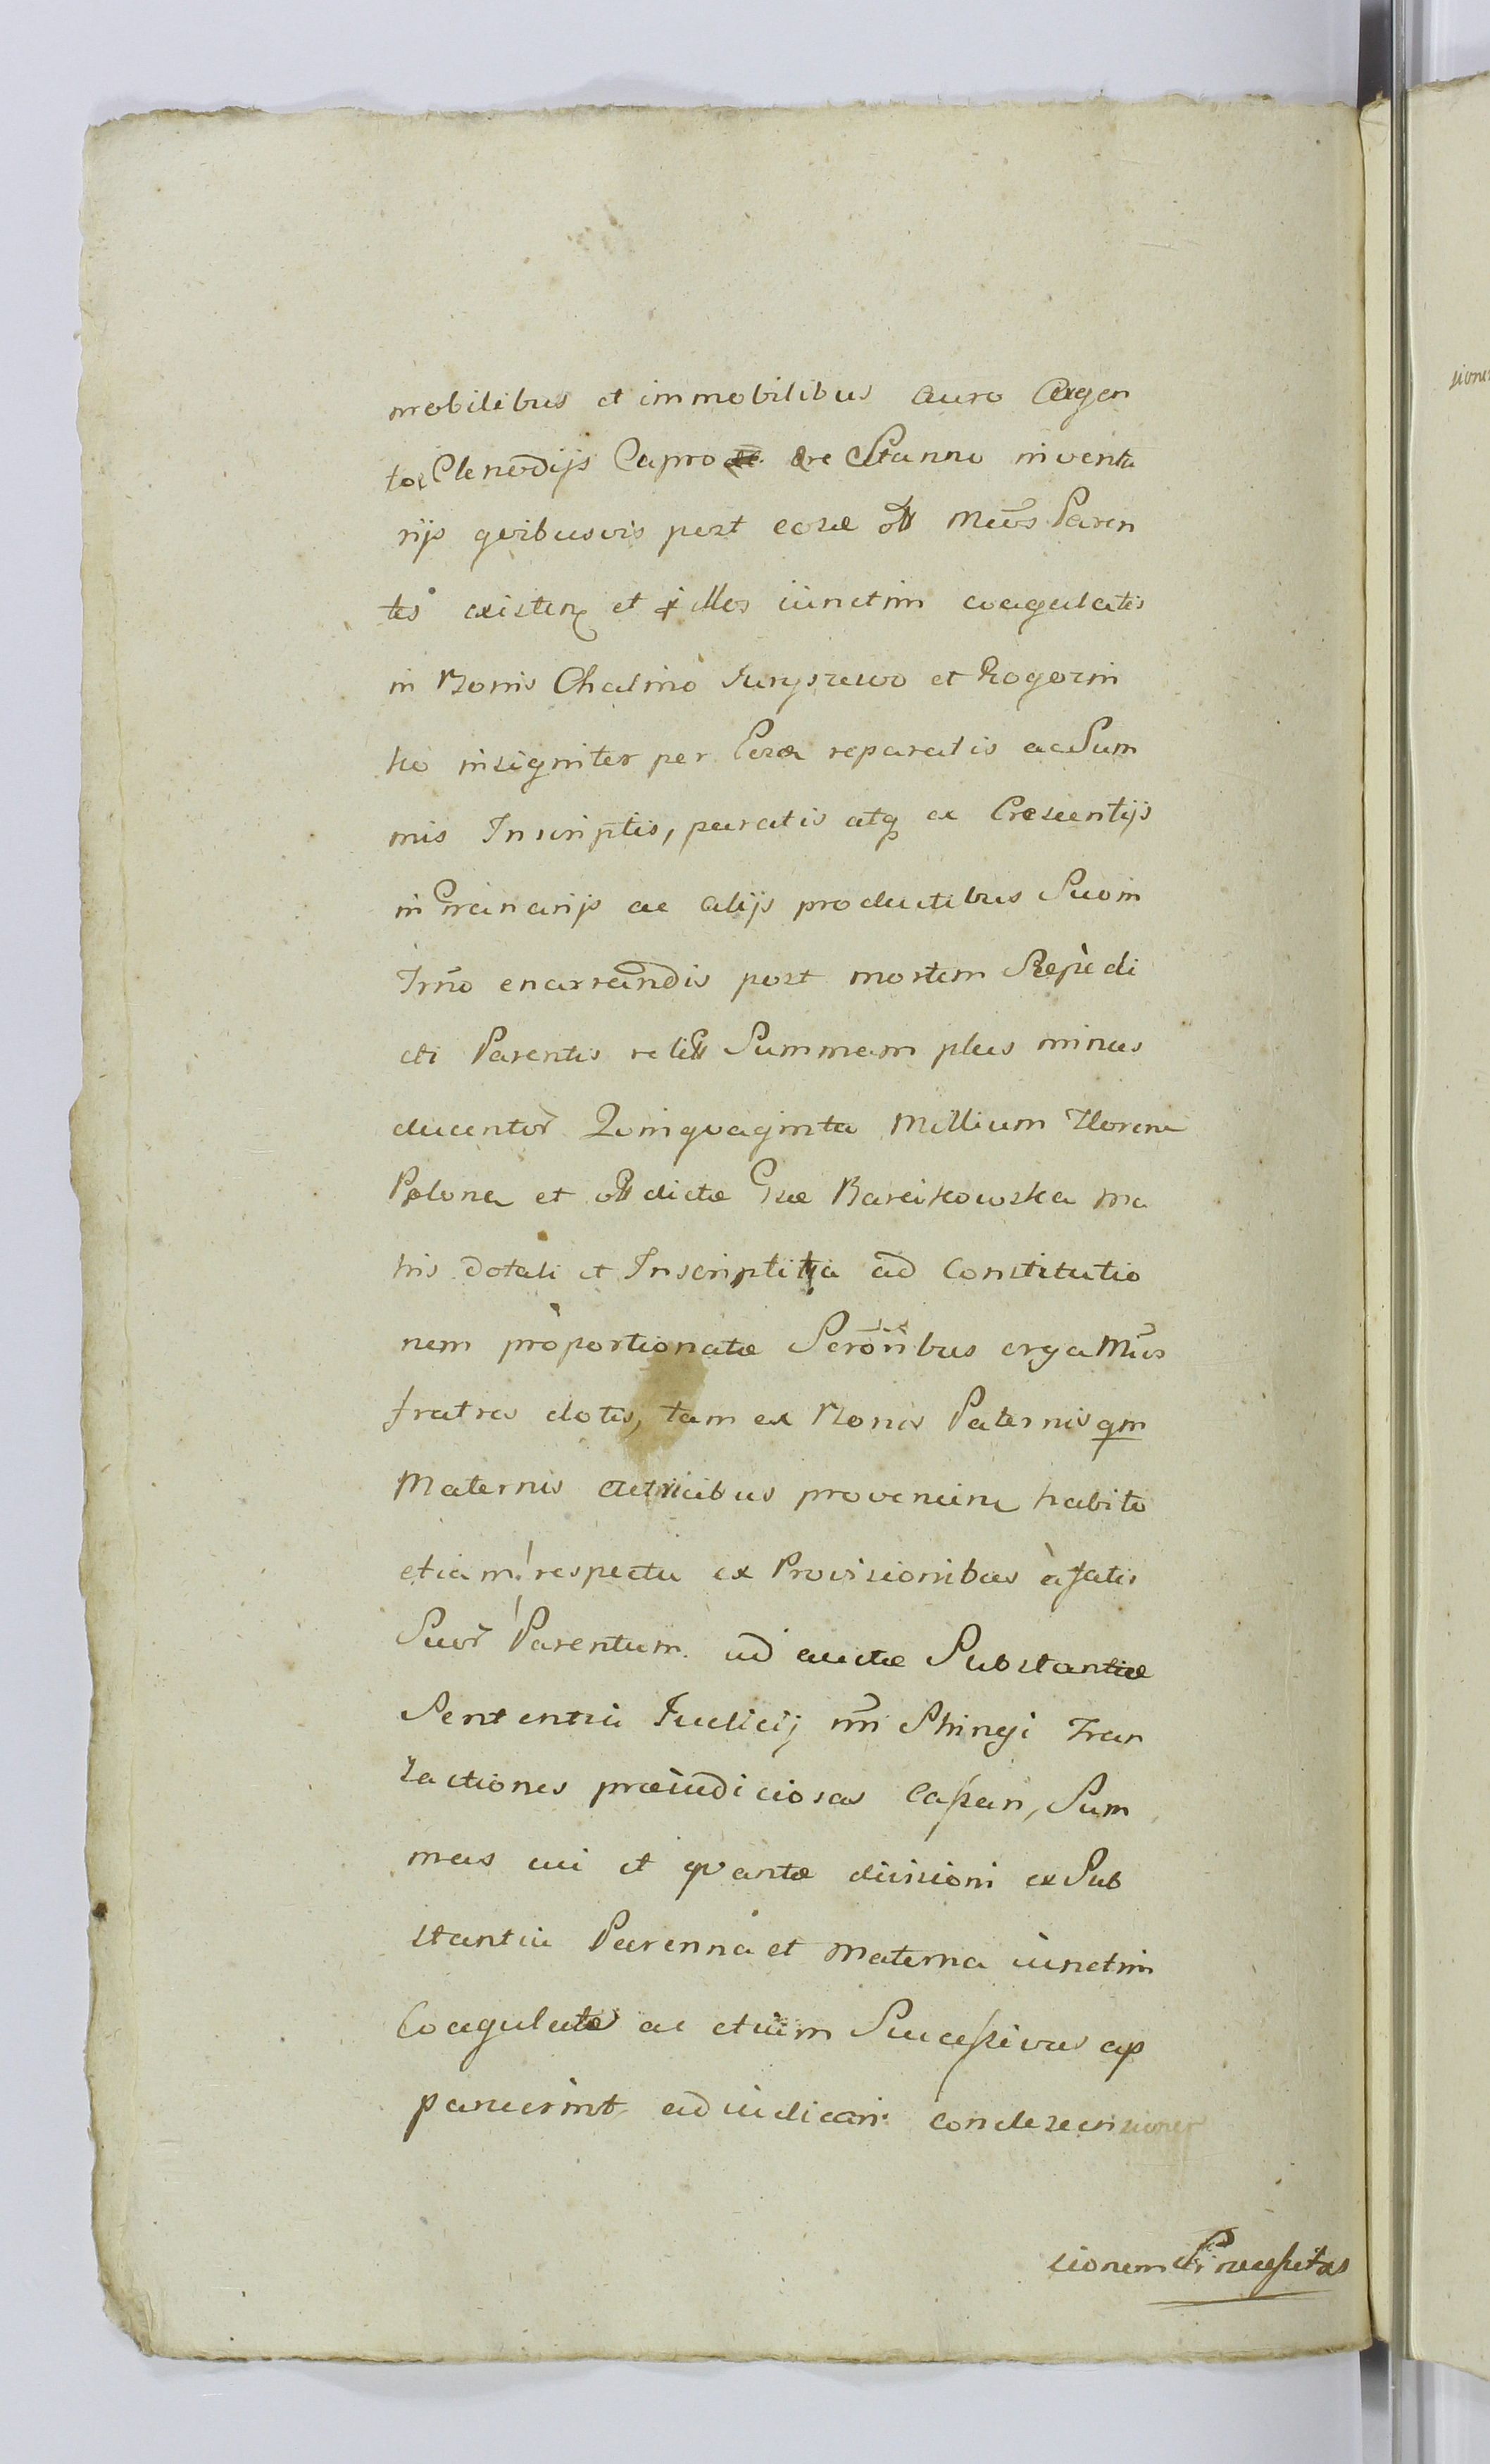 mobilibus et immobilibus Auro Argen
to Clenodijs Cupro Ære Stanno inventa
rijs quibusvis post eosd olł mĩos Paren
tes existen et p illos iunctim coagulatis
in Bonis Chalino Juryszewo et Rogozin
ko insigniter per Eosd reparatis ac Sum
mis Inscriptis, paratis atq ex Crescentijs
in Granarijs ac alijs productibus Suo in
Trño enarrandis post mortem Repẽdi
cti Parentis relił Summam plus minus
ducentor̃ Quinquaginta Millium Floren
Polona et olł dictæ Gsæ Barcikowska Ma
tris dotali et Inscriptitia ad Constitutio
nem proportionatæ Sorõribus erga Mĩos
fratres dotis, tam ex Bonis Paternis qm
Maternis Actricibus provenien habito
etiam respectu ex Provisionibus à fatis
Suor̃ Parentum ad auctæ Substantiæ
Sententia Judicij ñri Phingi Tran
sactiones præiudiciosas Cassari, Sum
mas cui et quantæ divisioni ex Sub
stantia Paterna et Materna iunctim
Coagulatæ ac etiam Successivas ap
paruerint adiudicari condescen
sionem Pri necessitas
sione